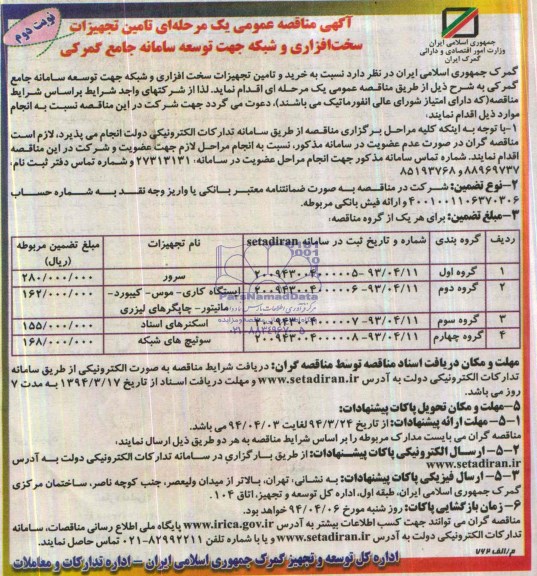 نوبت دوم
آگهی مناقصه عمومی یک مرحله‌ای تامین تجهیزات
سخت‌افزاری و شبکه جهت توسعه سامانه جامع گمرکی
جمهوری اسلامی ایران
وزارت امور اقتصادی و دارائی
گمرک ایران
گمرک جمهوری اسلامی ایران در نظر دارد نسبت به خرید و تامین تجهیزات سخت افزاری و شبکه جهت توسعه سامانه جامع
گمرکی به شرح ذیل از طریق مناقصه عمومی یک مرحله ای اقدام نماید. لذا از شرکتهای واجد شرایط براساس شرایط
مناقصه(که دارای امتیاز شورای عالی انفورماتیک می باشند)، دعوت می گردد جهت شرکت در این مناقصه نسبت به انجام
موارد ذیل اقدام نمایند:
۱-با توجه به اینکه کلیه مراحل برگزاری مناقصه از طریق سامانه تدارکات الکترونیکی دولت انجام می پذیرد، لازم است
مناقصه گران در صورت عدم عضویت در سامانه مذکور، نسبت به انجام مراحل لازم جهت عضویت و شرکت در این مناقصه
اقدام نمایند. شماره تماس سامانه مذکور جهت انجام مراحل عضویت در سامانه: ۲۷۳۱۳۱۳۱ و شماره تماس دفتر ثبت نام:
۸۸۹۶۹۷۳۷ و ۸۵۱۹۳۷۶۸
۲-نوع تضمین: شرکت در مناقصه به صورت ضمانتنامه معتبر بانکی یا واریز وجه نقد به شماره حساب
۴۰۰۱۰۰۱۱۰۶۳۷۰۳۰۶ و ارائه فیش بانکی مربوطه.
۳-مبلغ تضمین: برای هر یک از گروه مناقصه:
ردیف گروه بندی شماره و تاریخ ثبت در سامانه setadiran نام تجهیزات مبلغ تضمین مربوطه (ریال)
۱ گروه اول ۹۳/۰۴/۱۱-۲۰۰۹۴۳۰۰۴۰۰۰۰۰۵ سرور ۲۸۰/۰۰۰/۰۰۰
۲ گروه دوم ۹۳/۰۴/۱۱-۲۰۰۹۴۳۰۰۴۰۰۰۰۰۶ ایستگاه کاری-موس- کیبورد- مانیتور- چاپگرهای لیزری ۱۶۲/۰۰۰/۰۰۰
۳ گروه سوم ۹۳/۰۴/۱۱-۲۰۰۹۴۳۰۰۴۰۰۰۰۰۷ اسکنرهای اسناد ۱۵۵/۰۰۰/۰۰۰
۴ گروه چهارم ۹۳/۰۴/۱۱-۲۰۰۹۴۳۰۰۴۰۰۰۰۰۸ سوئیچ های شبکه ۱۶۸/۰۰۰/۰۰۰
ParsNamadData
۰۲۱-۸۸۳۴۹۶۷۰-۵
مهلت و مکان دریافت اسناد مناقصه توسط مناقصه گران: دریافت شرایط مناقصه به صورت الکترونیکی از طریق سامانه
تدارکات الکترونیکی دولت به آدرس www.setadiran.ir و مهلت دریافت اسناد از تاریخ ۱۳۹۴/۳/۱۷ به مدت ۷
روز می باشد.
۵-مهلت و مکان تحویل پاکات پیشنهادات:
۵-۱- مهلت ارائه پیشنهادات: از تاریخ ۹۴/۳/۲۴ لغایت ۹۴/۰۴/۰۳ می باشد.
مناقصه گران می بایست مدارک مربوطه را بر اساس شرایط مناقصه به هر دو طریق ذیل ارسال نمایند:
۵-۲- ارسال الکترونیکی پاکات پیشنهادات: از طریق بارگزاری در سامانه تدارکات الکترونیکی دولت به آدرس
www.setadiran.ir
۵-۳- ارسال فیزیکی پاکات پیشنهادات: به نشانی: تهران، بالاتر از میدان ولیعصر، جنب کوچه ناصر، ساختمان مرکزی
گمرک جمهوری اسلامی ایران، طبقه اول، اداره کل توسعه و تجهیز، اتاق ۱۰۴.
۶- زمان بازگشایی پاکات: روز شنبه مورخ ۹۴/۰۴/۰۶ خواهد بود.
مناقصه گران می توانند جهت کسب اطلاعات بیشتر به آدرس www.irica.gov.ir پایگاه ملی اطلاع رسانی مناقصات، سامانه
تدارکات الکترونیکی دولت به آدرس www.setadiran.ir و یا با شماره تلفن ۸۲۹۹۲۲۱۱-۰۲۱ تماس حاصل نمایند.
م/الف ۷۶۲
اداره کل توسعه و تجهیز گمرک جمهوری اسلامی ایران – اداره تدارکات و معاملات